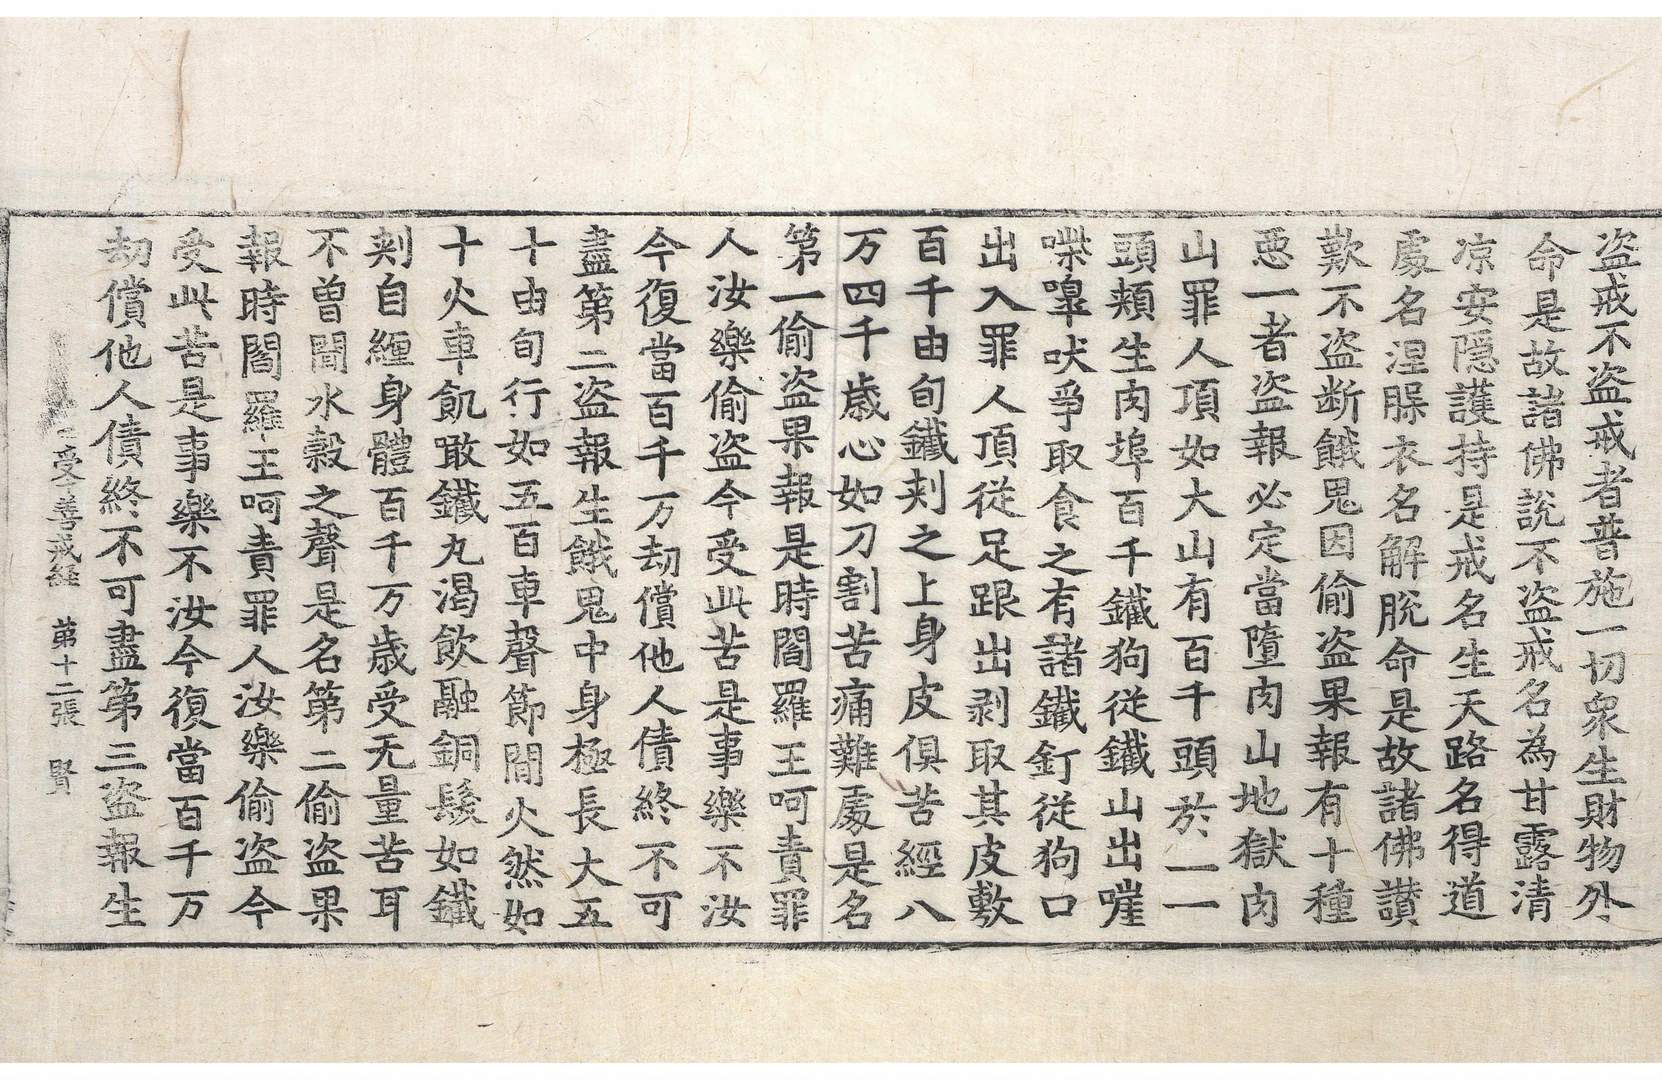 盗戒不盗戒者普施一切衆生財物外
命是故諸佛說不盗戒名為甘露清
凉安隱護持是戒名生天路名得道
處名涅脲衣名解脫命是故諸佛讃
歎不盗断餓鬼因偷盗果報有十種
惡一者盗報必定當墮肉山地獄肉
山罪人頂如大山有百千頭於一一
頭頰生肉埠百千鐵狗從鐵山出嘊
喍嘷吠爭取食之有諸鐵釘從狗口
出入罪人頂從足跟出剥取其皮敷
百千由旬鐵刾之上身皮俱苦經八
万四千歳心如刀割苦痛難處是名
第一偷盗果報是時閻羅王呵責罪
人汝樂偷盗今受此苦是事樂不汝
今復當百千万劫償他人債終不可
盡第二盗報生餓鬼中身極長大五
十由旬行如五百車聲節間火然如
十火車飢噉鐵丸渴飲融銅髮如鐵
刾自纏身體百千万歳受无量苦耳
不曽聞水穀之聲是名第二偷盗果
報時閻羅王呵責罪人汝樂偷盗今
受此苦是事樂不汝今復當百千万
劫償他人債終不可盡第三盗報生
受善戒経 苐十二張 賢